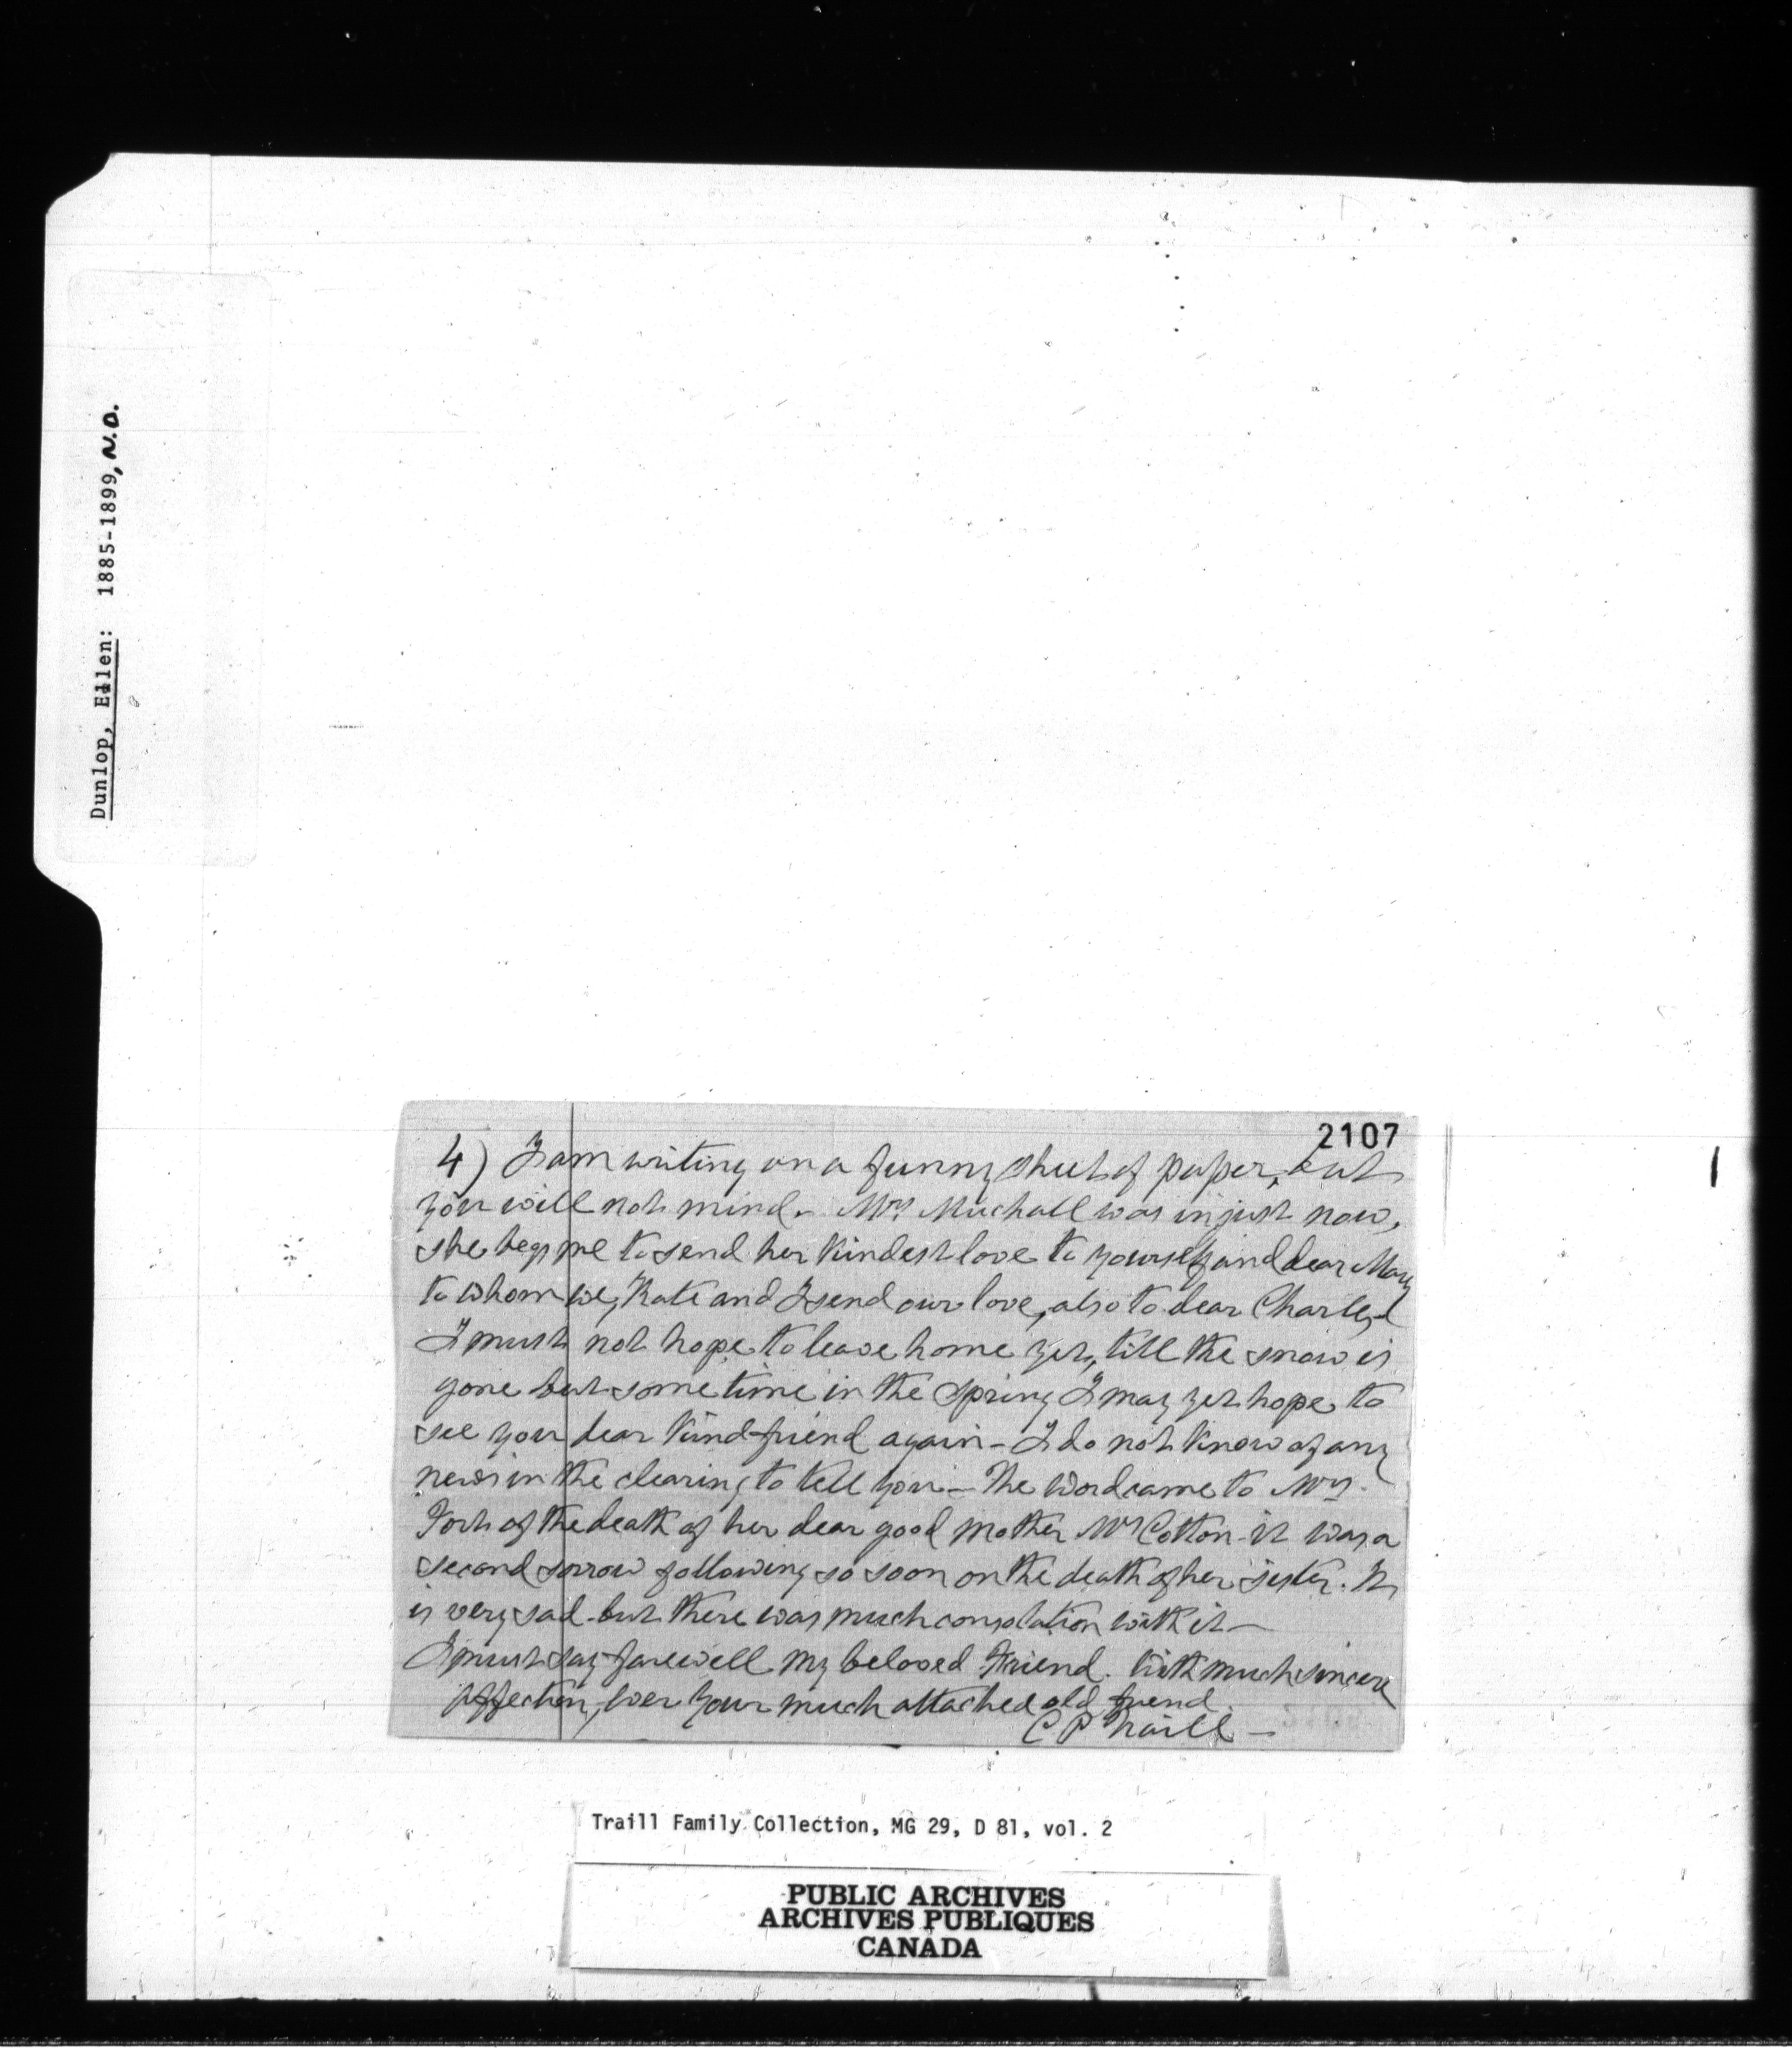 Dunlop, Ellen: 1885-1899, N.D.
2107
4) I am writing on a funny sheet of paper, but
you will not mind. Mrs Muchall was in just now,
she begs me to send her kindest love to yourself and dear Mary
to whom we, Kate and I send our love, also to dear Charles
I must not hope to leave home yet, till the snow is
gone but some time in the Spring I may yet hope to
see you dear kind friend again - I do not know of any
news in the clearing to tell you - The word came to Mrs.
of the death of her dear good mother Mrs Cotton - it was a
second sorrow following so soon on the death of her sister. It
is very sad - but there was much consolation with it -
I must say farewell my beloved Friend. With much sincere
affection, ever your much attached old friend
C P Traill -
Traill Family Collection, MG 29, D 81, vol. 2
PUBLIC ARCHIVES
ARCHIVES PUBLIQUES
CANADA